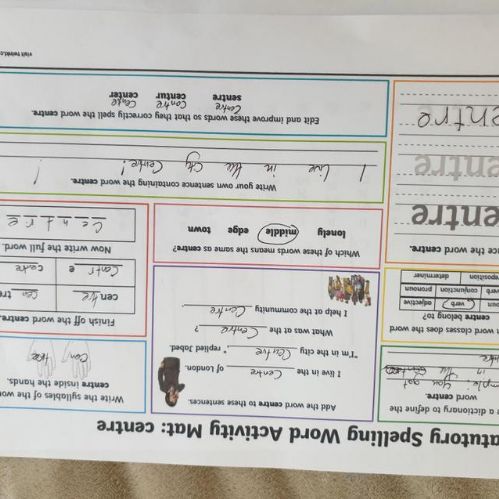 atutory Spelling Word Activity Mat: centre
a dictionary to define the
word centre.
mple: you got
in the
Add the word centre to these sentences.
I live in the Centre of London.
"I'm in the city Centre," replied Jabed.
What was at the Centre?
I help at the community Centre
Write the syllables of the wo
centre inside the hands.
Cen
n word classes does the
centre belong to?
verb adjective
verb conjunction pronoun
position determiner
Finish off the word centre.
centre
Centre centre
Now write the full word.
Centre
Which of these words means the same as centre?
lonely middle edge town
ce the word centre.
entre
entre
entre
Write your own sentence containing the word centre.
I live in the city Centre!
Edit and improve these words so that they correctly spell the word centre.
sentre centur center
Centre Centre Centre
visit twinkl.c